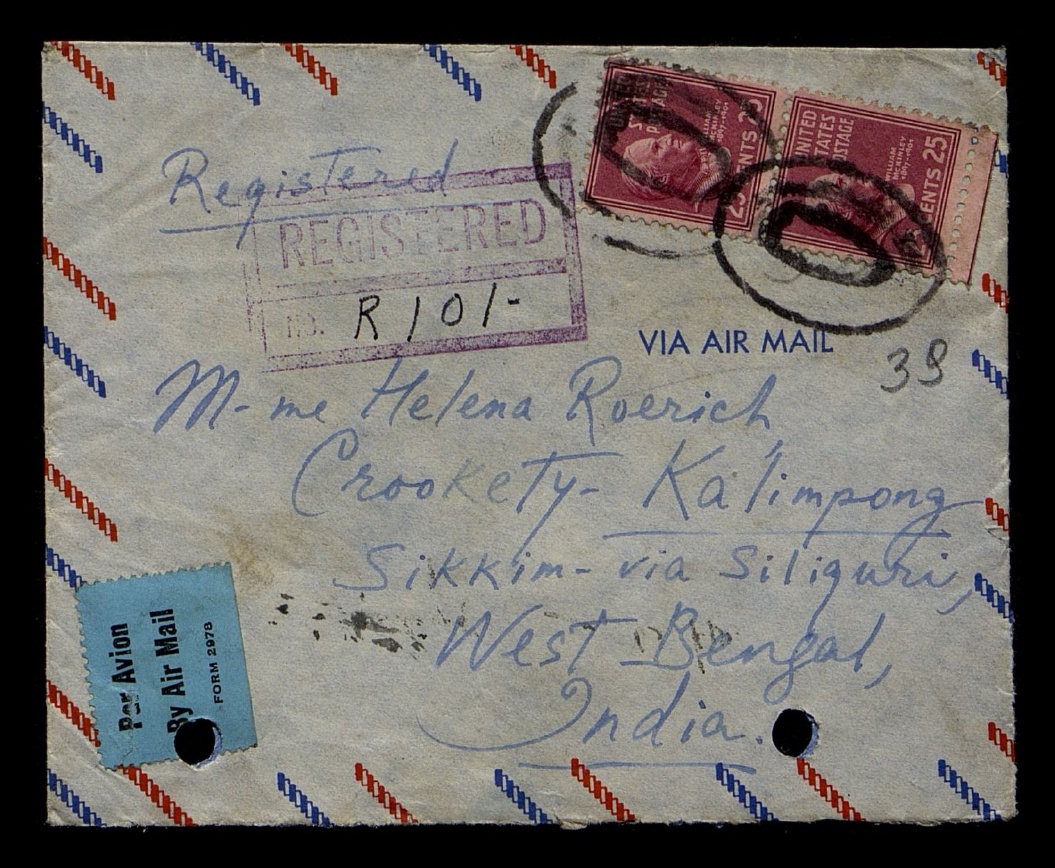 Registered
REGISTERED
NO. R101/-
UNITED
STATES
POSTAGE
WILLIAM
McKINLEY
1897-1901
CENTS 25
UNITED
STATES
POSTAGE
WILLIAM
McKINLEY
1897-1901
CENTS 25
VIA AIR MAIL
39
M-me Helena Roerich
Crookety- Kalimpong
Sikkim- via Siliguri,
West Bengal,
India.
Par Avion
By Air Mail
FORM 2978